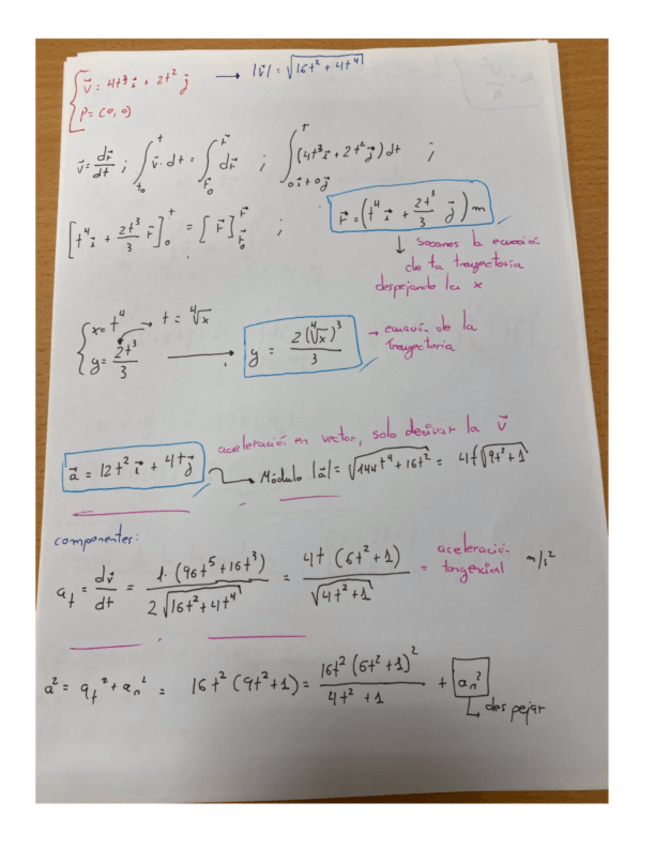 v⃗ = 4t³ i⃗ + 2t² j⃗ → |v⃗| = √(16t² + 4t⁴)
P = (0, 0)
v⃗ = dr⃗/dt ; ∫_{t₀}^{t} v⃗ · dt = ∫_{r⃗₀}^{r⃗} dr⃗ ; ∫_{0i⃗+0j⃗}^{t} (4t³i⃗ + 2t² j⃗) dt ;
[t⁴ i⃗ + 2t³/3 r⃗]₀^t = [r⃗]_{r⃗₀}^{r⃗} ; r⃗ = (t⁴ i⃗ + 2t³/3 j⃗) m
↓ sacamos la ecuació
de ta trayectoria
despejando la x
x = t⁴ → t = ⁴√x
y = 2t³/3 → y = 2(⁴√x)³/3 → ecuació de la
trayectoria
aceleració en vector, solo derivar la v⃗
a⃗ = 12t² i⃗ + 4t j⃗ → Módulo |a⃗| = √(144t⁴ + 16t²) = 4t√(9t² + 1)
componentes:
a_t = dv⃗/dt = 1·(96t⁵ + 16t³) / 2√(16t² + 4t⁴) = 4t (6t² + 1) / √(4t² + 1) = aceleració tangencial m/s²
a² = a_t² + a_n² = 16t² (9t² + 1) = 16t² (6t² + 1)² / 4t² + 1 + a_n²
despejar